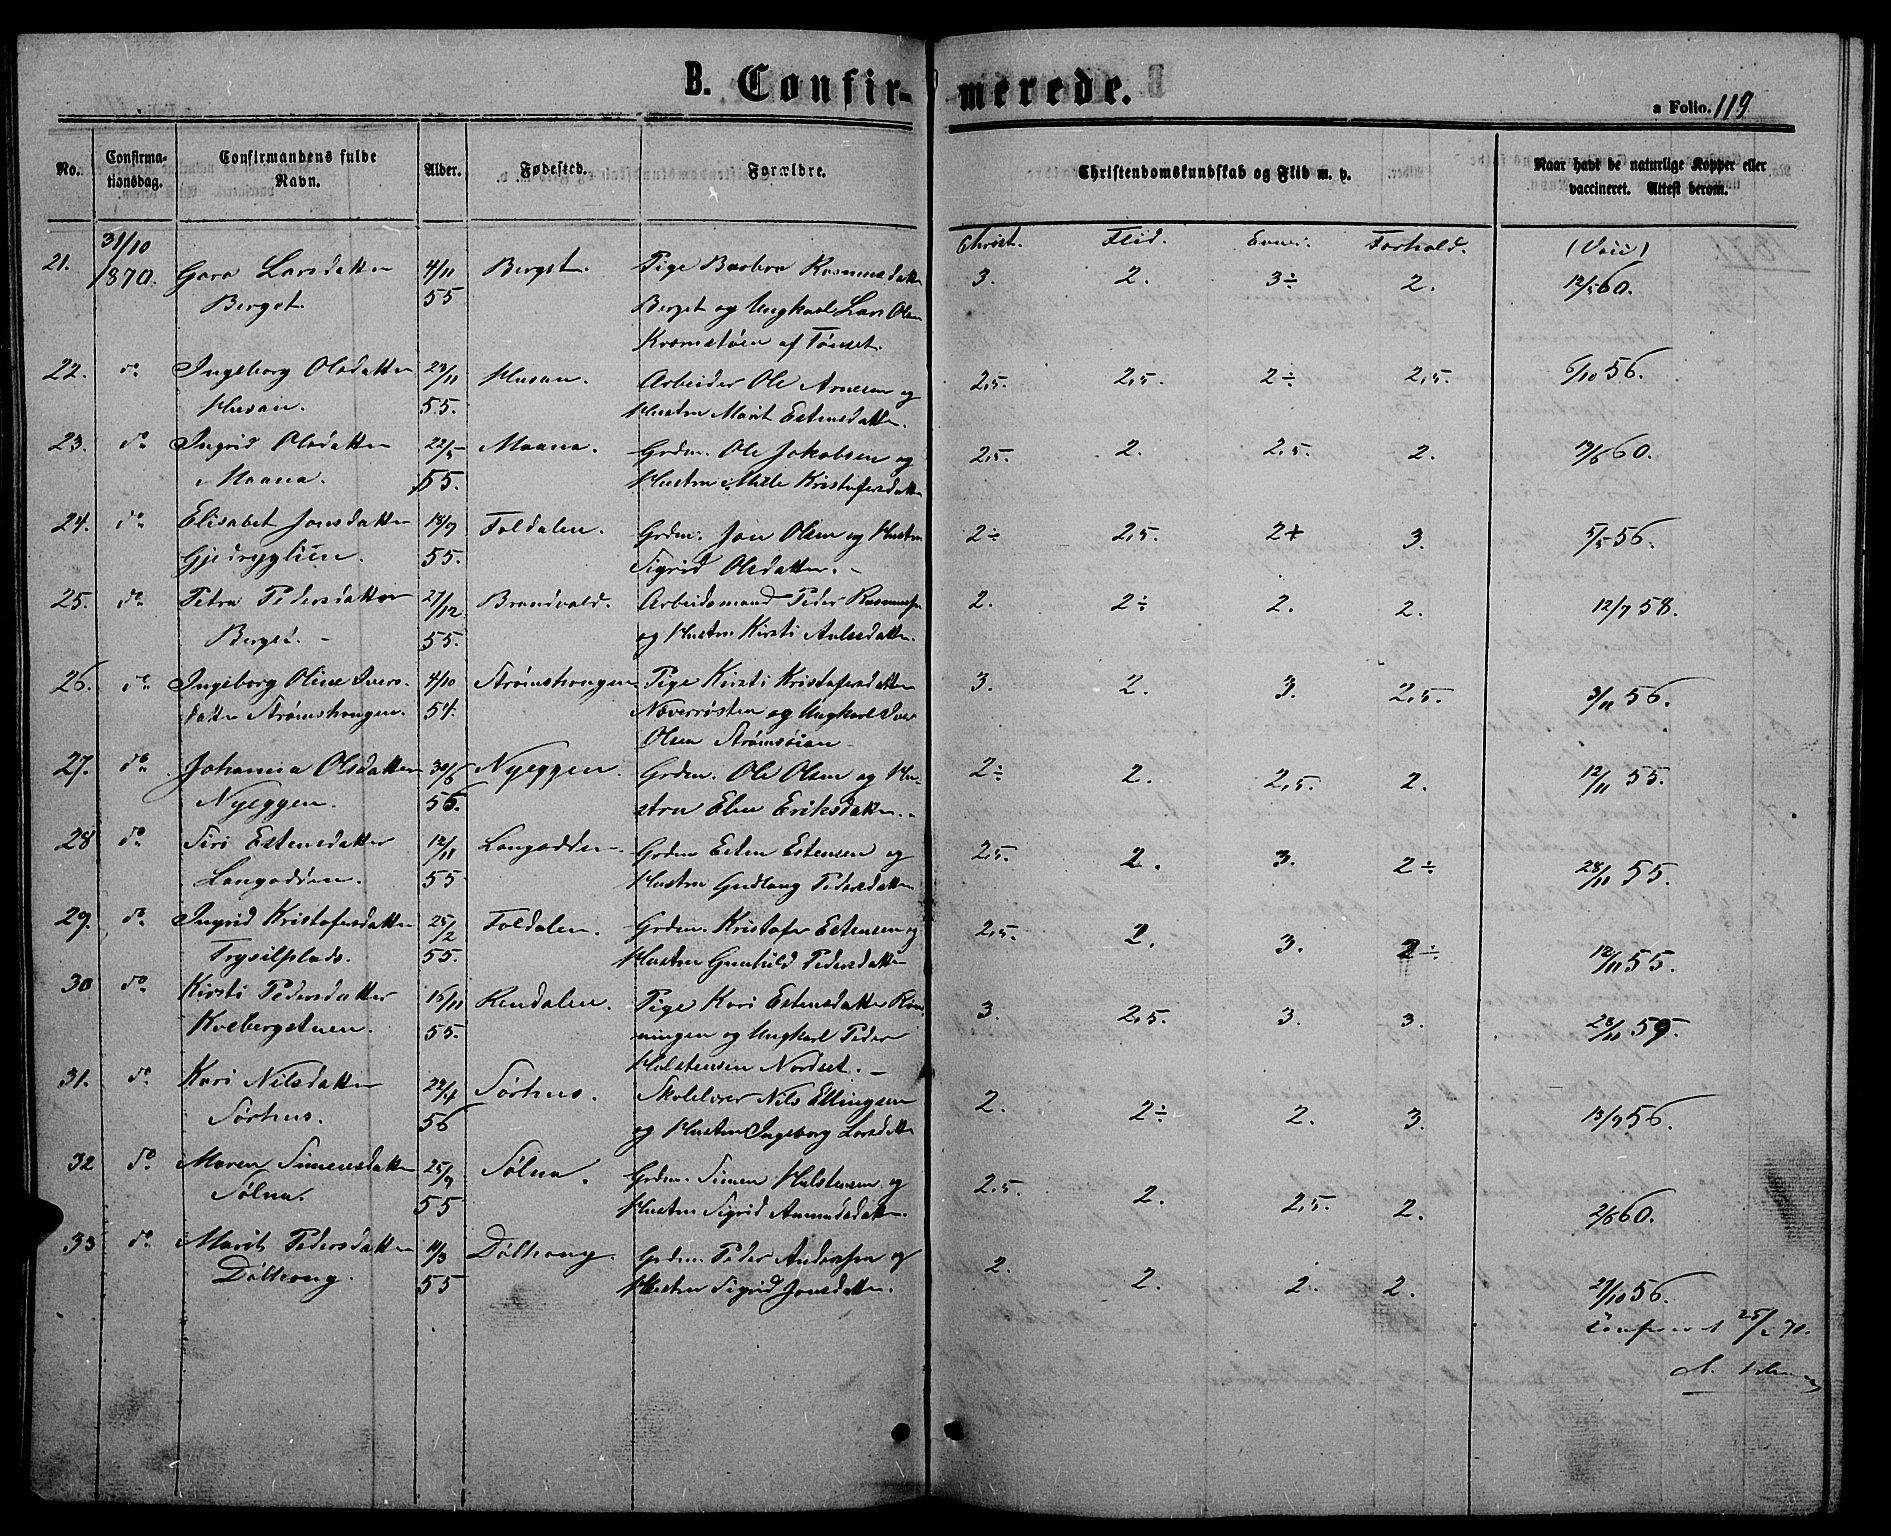 B. Confir-
merede.
a Folio. 119
No.
Confirma-
tionsdag.
Confirmandens fulde
Navn.
Alder.
Fødested.
Forældre.
Christendomskundskab og Flid m. v.
Naar havt de naturlige Kopper eller
vaccineret. Attest derom.
Christ. Flid. Evner. Forhold. (Vacc)
21. 31/10 Goro Larsdatter 4/11 Berget. Pige Barbra Rasmusdatter 3. 2. 3÷ 2. 12/5 60.
1870. Berget. 55 Berget og Ungkarl Lars Olsen
Kvæmstøen af Tönset.
22. do Ingeborg Olsdatter 23/11 Husan. Arbeider Ole Arnesen og 2,5. 2,5. 2÷ 2,5. 6/10 56.
Husan. 55. Hustru Marit Estensdatter.
23. do Ingrid Olsdatter 22/5 Moana. Grdm. Ole Jakobsen og 2,5. 2. 2,5. 2. 60.
Moana. 55. Hustru Mille Kristofersdatter
24. do Elisabet Jonsdatter 18/9 Foldalen. Grdm. Jon Olsen og Hustru 2÷ 2,5. 2+ 3. 5/5 56.
Gjedrygglien. 55. Sigrid Olsdatter. –
25. do Petra Pedersdatter 27/12 Brandvold. Arbeidsmand Peder Rasmussen 2. 2÷ 2. 2. 12/7 58.
Berget. – 55. og Hustru Kirsti
26. do Ingeborg Oline Ivers- 4/10 Strømshougen Pige Kirsti Kristofersdatter 3. 2. 3. 2,5. 3/11 56.
datter Strømshougen. 54. Nøverrøsten og Ungkarl Iver
Olsen Strømsøien
27. do Johanna Olsdatter 30/6 Nyeggen. Grdm. Ole Olsen og Hu- 2÷ 2. 2,5. 2. 12/11 55.
Nyeggen. 56. stru Elen Eriksdatter. –
28 do Siri Estensdatter 12/11 Langodden Grdm Esten Estensen og 2,5. 2. 3. 2÷ 28/11 55.
Langodden. 55 Hustru Gudlaug Pedersdatter
29. do Ingrid Kristofersdatter 25/2 Foldalen. Grdm. Kristofer Estensen og 2,5. 2. 3. 2÷ 12/11 55.
Trysilplads. 55. Hustru Gunhild Pedersdatter
30 do Kirsti Pedersdatter 16/11 Rendalen. Pige Kari Estensdatter Røn- 3. 2,5. 3. 3. 28/10 59.
Kvebergstuen. 55. ningen og Ungkarl Peder
Halstensen Nordset. –
31. do Kari Nilsdatter 22/4 Sørhus. Skolelærer Nils Ellingsen 2. 2÷ 2. 3. 13/9 56.
Sørhus. 56 og Hustru Ingeborg Larsdatter
32 do Maren Simensdatter 25/9 Sølna. Grdm. Simen Halstensen og 2,5. 2. 2,5. 2. 2/6 60.
Sølna. 55 Hustru Sigrid Amundsdatter.
33 do Marit Pedersdatter 11/3 Dølhoug. Grdm. Peder Andersen og 2. 2. 2. 2. 27/10 56.
Dølhoug. 55 Hustru Sigrid Jonsdatter.
Confereret 25/2 70.